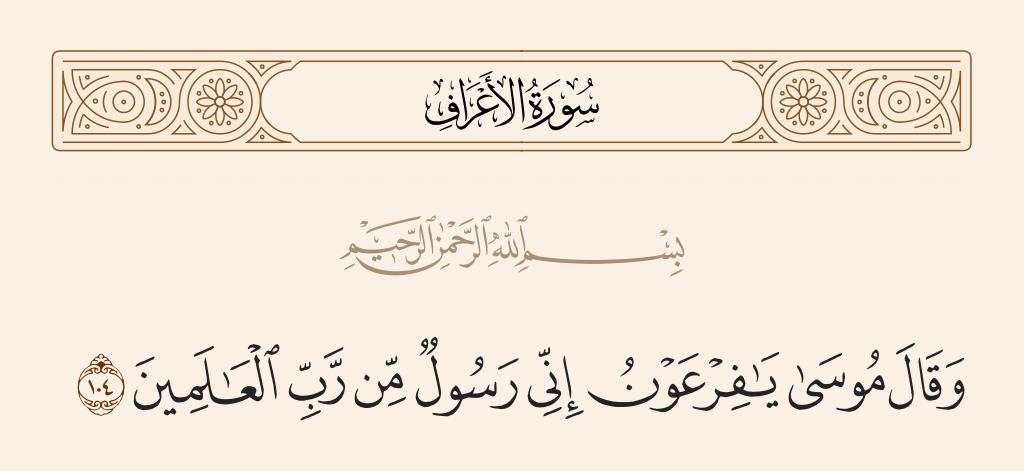 سُورَةُ الأَعْرَافِ
بِسْمِ ٱللَّهِ ٱلرَّحْمَٰنِ ٱلرَّحِيمِ
وَقَالَ مُوسَىٰ يَـٰفِرْعَوْنُ إِنِّى رَسُولٌ مِّن رَّبِّ ٱلْعَـٰلَمِينَ ١٠٤